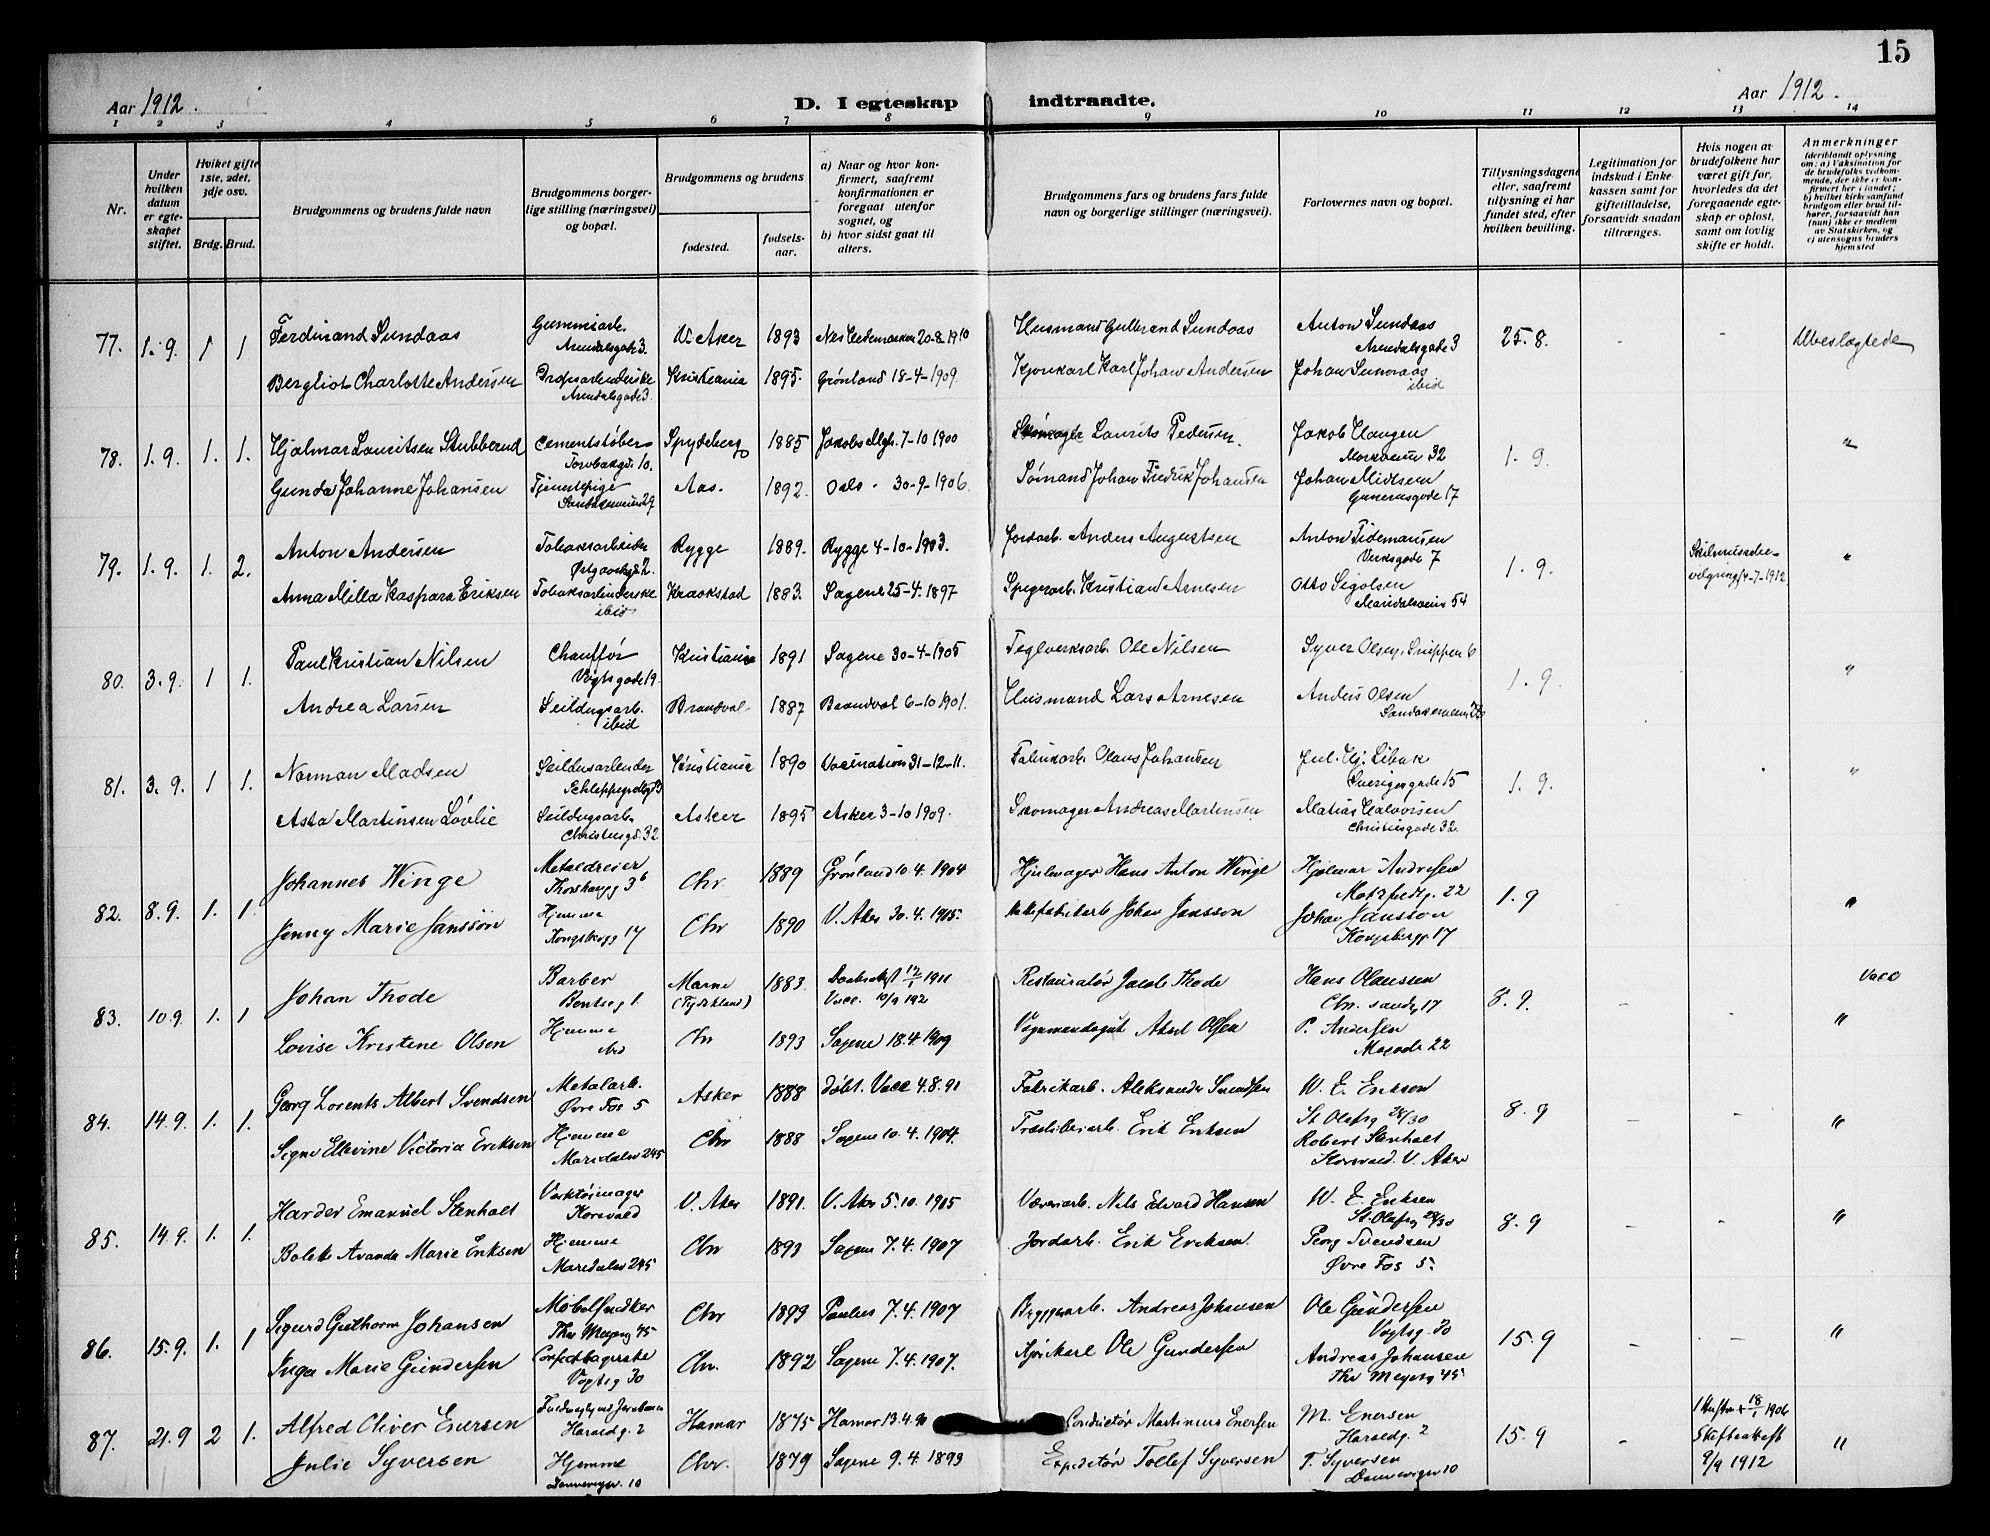 15
Aar 1912.
D. I egteskap indtraadte.
Aar 1912.
1 2 3 4 5 6 7 8 9 10 11 12 13 14
Nr.
Under hvilken datum er egteskapet stiftet.
Hviket gifte 1ste, 2det, 3dje osv.
Brdg. Brud.
Brudgommens og brudens fulde navn
Brudgommens borgerlige stilling (næringsvei) og bopæl.
Brudgommens og brudens
fødested.
fødselsaar.
a) Naar og hvor konfirmert, saafremt konfirmationen er foregaat utenfor sognet, og
b) hvor sidst gaat til alters.
Brudgommens fars og brudens fars fulde navn og borgerlige stillinger (næringsvei).
Forlovernes navn og bopæl.
Tillysningsdagene eller, saafremt tillysning ei har fundet sted, efter hvilken bevilling.
Legitimation for indskud i Enkekassen samt for giftetilladelse, forsaavidt saadan tiltrænges.
Hvis nogen av brudefolkene har været gift før, hvorledes da det foregaaende egteskap er opløst, samt om lovlig skifte er holdt.
Anmerkninger
(deriblandt oplysning om: a) Vaksination for de brudefolks vedkommende, der ikke er konfirmert her i landet; b) hvilket kirkesamfund brudgom eller brud tilhører, forsaavidt han (hun) ikke er medlem av Statskirken, og c) utensogns bruders hjemsted
77. 1. 9. 1 1 Ferdinand Sundaas Gummiarb. Arendalsgade 3. V. Aker 1893 Nes Hedemarken 20-8-1910 Husmand Gulbrand Sundaas Anton Sundaas Arendalsgade 3 25. 8. - Ubeslægtede
Bergliot Charlotte Andersen Arendalsgade 3 Kristiania 1895. Grønland 18-4-1909. Kjørekarl Karl Johan Andersen Johan Sundaas ibid
78. 1. 9. 1. 1. Hjalmar Lauritsen Stubberud Cementstøber Torvbakgd. 10. Spydeberg 1885 Jakobs Mgh. 7-10 1900 Skomager Laurits Pedersen. Jakob Haugen 32 1. 9. "
Gunda Johanne Johansen Tjenestepige 29 Aas. 1892. Oslo - 30-9-1906. Sømand Johan Fredrik Johansen Johan 17
79. 1. 9. 1. 2. Anton Andersen Tobaksarbeider 2. Rygge 1889. Rygge 4-10-1903. Jordarb. Anders Augustsen Anton Tidemansen Verksgade 7 1. 9. Skilmissebevilgning 4-7-1912 "
Anna Milla Kaspara Eriksen Tobaksarbeiderske ibid Kraakstad 1883. Sagene 25-4-1897 Kristian Arnesen Otto Maridalsveien 54
80. 3. 9. 1 1. Paul Kristian Nilsen Chauffør Vogtsgade 19. Kristiania 1891 Sagene 30-4-1905 Teglverksarb. Ole Nilsen Syver Olsen, Snippen 6 1. 9. "
Andrea Larsen Seildugsarb. ibid Brandval 1887 Brandval 6-10 1901. Husmand Lars Arnesen Anders Olsen
81. 3. 9. 1 1. Norman Madsen Seildugsarbeider Kristiania 1890 Vaccination 31-12-11. Fabrikarb. Olaus Johansen Jul. Hj. Libak Sverigesgade 15 1. 9. "
Asta Martinsen Løvlie Seildugsarb. Christiesgd. 32 Asker 1895 Asker 3-10 1909. Skomager Andreas Martinsen Matias Halvorsen Christiesgade 32.
82. 8. 9. 1. 1. Johannes Winge Metaldreier 3b Chr. 1889 Grønland 10. 4. 1904 Hjulmager Hans Anton Winge Hjalmar Andresen 22 1. 9 "
Jenny Marie Jansson Hjemme Kongsbergg 17 Chr 1890 V. Aker 30. 4. 1905. Johan Jansson Johan Jansson Kongsbergg. 17
83. 10. 9. 1. 1 Johan Thode Barber Bentseg 1. Marne (Tydskland) 1883. 12/1 1911 Vacc. 10/9 192 Restauratør Jacob Thode Hans Olaussen Chr. 17 8. 9. - Vacc
Lovise Kristine Olsen Hjemme ibid Chr 1893 Sagene 18. 4. 1909 Aksel Olsen P. Andersen 22 "
84. 14. 9. 1. 1. Georg Lorents Albert Svendsen Metalarb. Øvre Fos 5 Asker 1888 døbt. Vacc 4. 8. 91 Fabrikarb. Aleksander Svendsen W. E. Eriksen St Olafsg 28/30 8. 9 - - "
Signe Ellevine Victoria Eriksen Hjemme Maridalsv 245 Chr 1888 Sagene 10. 4. 1904. Erik Eriksen Robert Stenholt Korsvold. V. Aker
85. 14 9. 1. 1. Harder Emanuel Stenholt Verktøimager Korsvold V. Aker 1891. V. Aker 5. 10. 1905 Væveriarb. Nils Edvard Hansen W. E. Eriksen St. Olafsg 28/30 8. 9 - - "
Bolette Avanda Marie Eriksen Hjemme Maridalsv 245 Chr 1893 Sagene 7. 4. 1907 Jordarb. Erik Eriksen. Georg Svendsen Øvre Fos 5.
86. 15. 9. 1. 1 Sigurd Guthorm Johansen Møbelsnedker Thv Meyersg 45 Chr 1893 Paulus 7. 4. 1907 Byggearb. Andreas Johansen Ole Gundersen Vogtsg. 30 15. 9 - - "
Inga Marie Gundersen Vogtsg 30 Chr. 1892 Sagene 7. 4. 1907. Kjørekarl Ole Gundersen Andreas Johansen Thv Meyersg 45
87. 21. 9 2 1. Alfred Oliver Enersen Haraldg. 2 Hamar 1875 Hamar 13. 4. 90 Conductør Martinius Enersen M. Enersen Haraldg. 2 15. 9 - 18/1 1906 9/9 1912 "
Julie Syversen Hjemme Dannevigsv. 10 Chr. 1879 Sagene 9. 4. 1893 Expeditør Tollef Syversen T. Syversen Dannevigsv 10